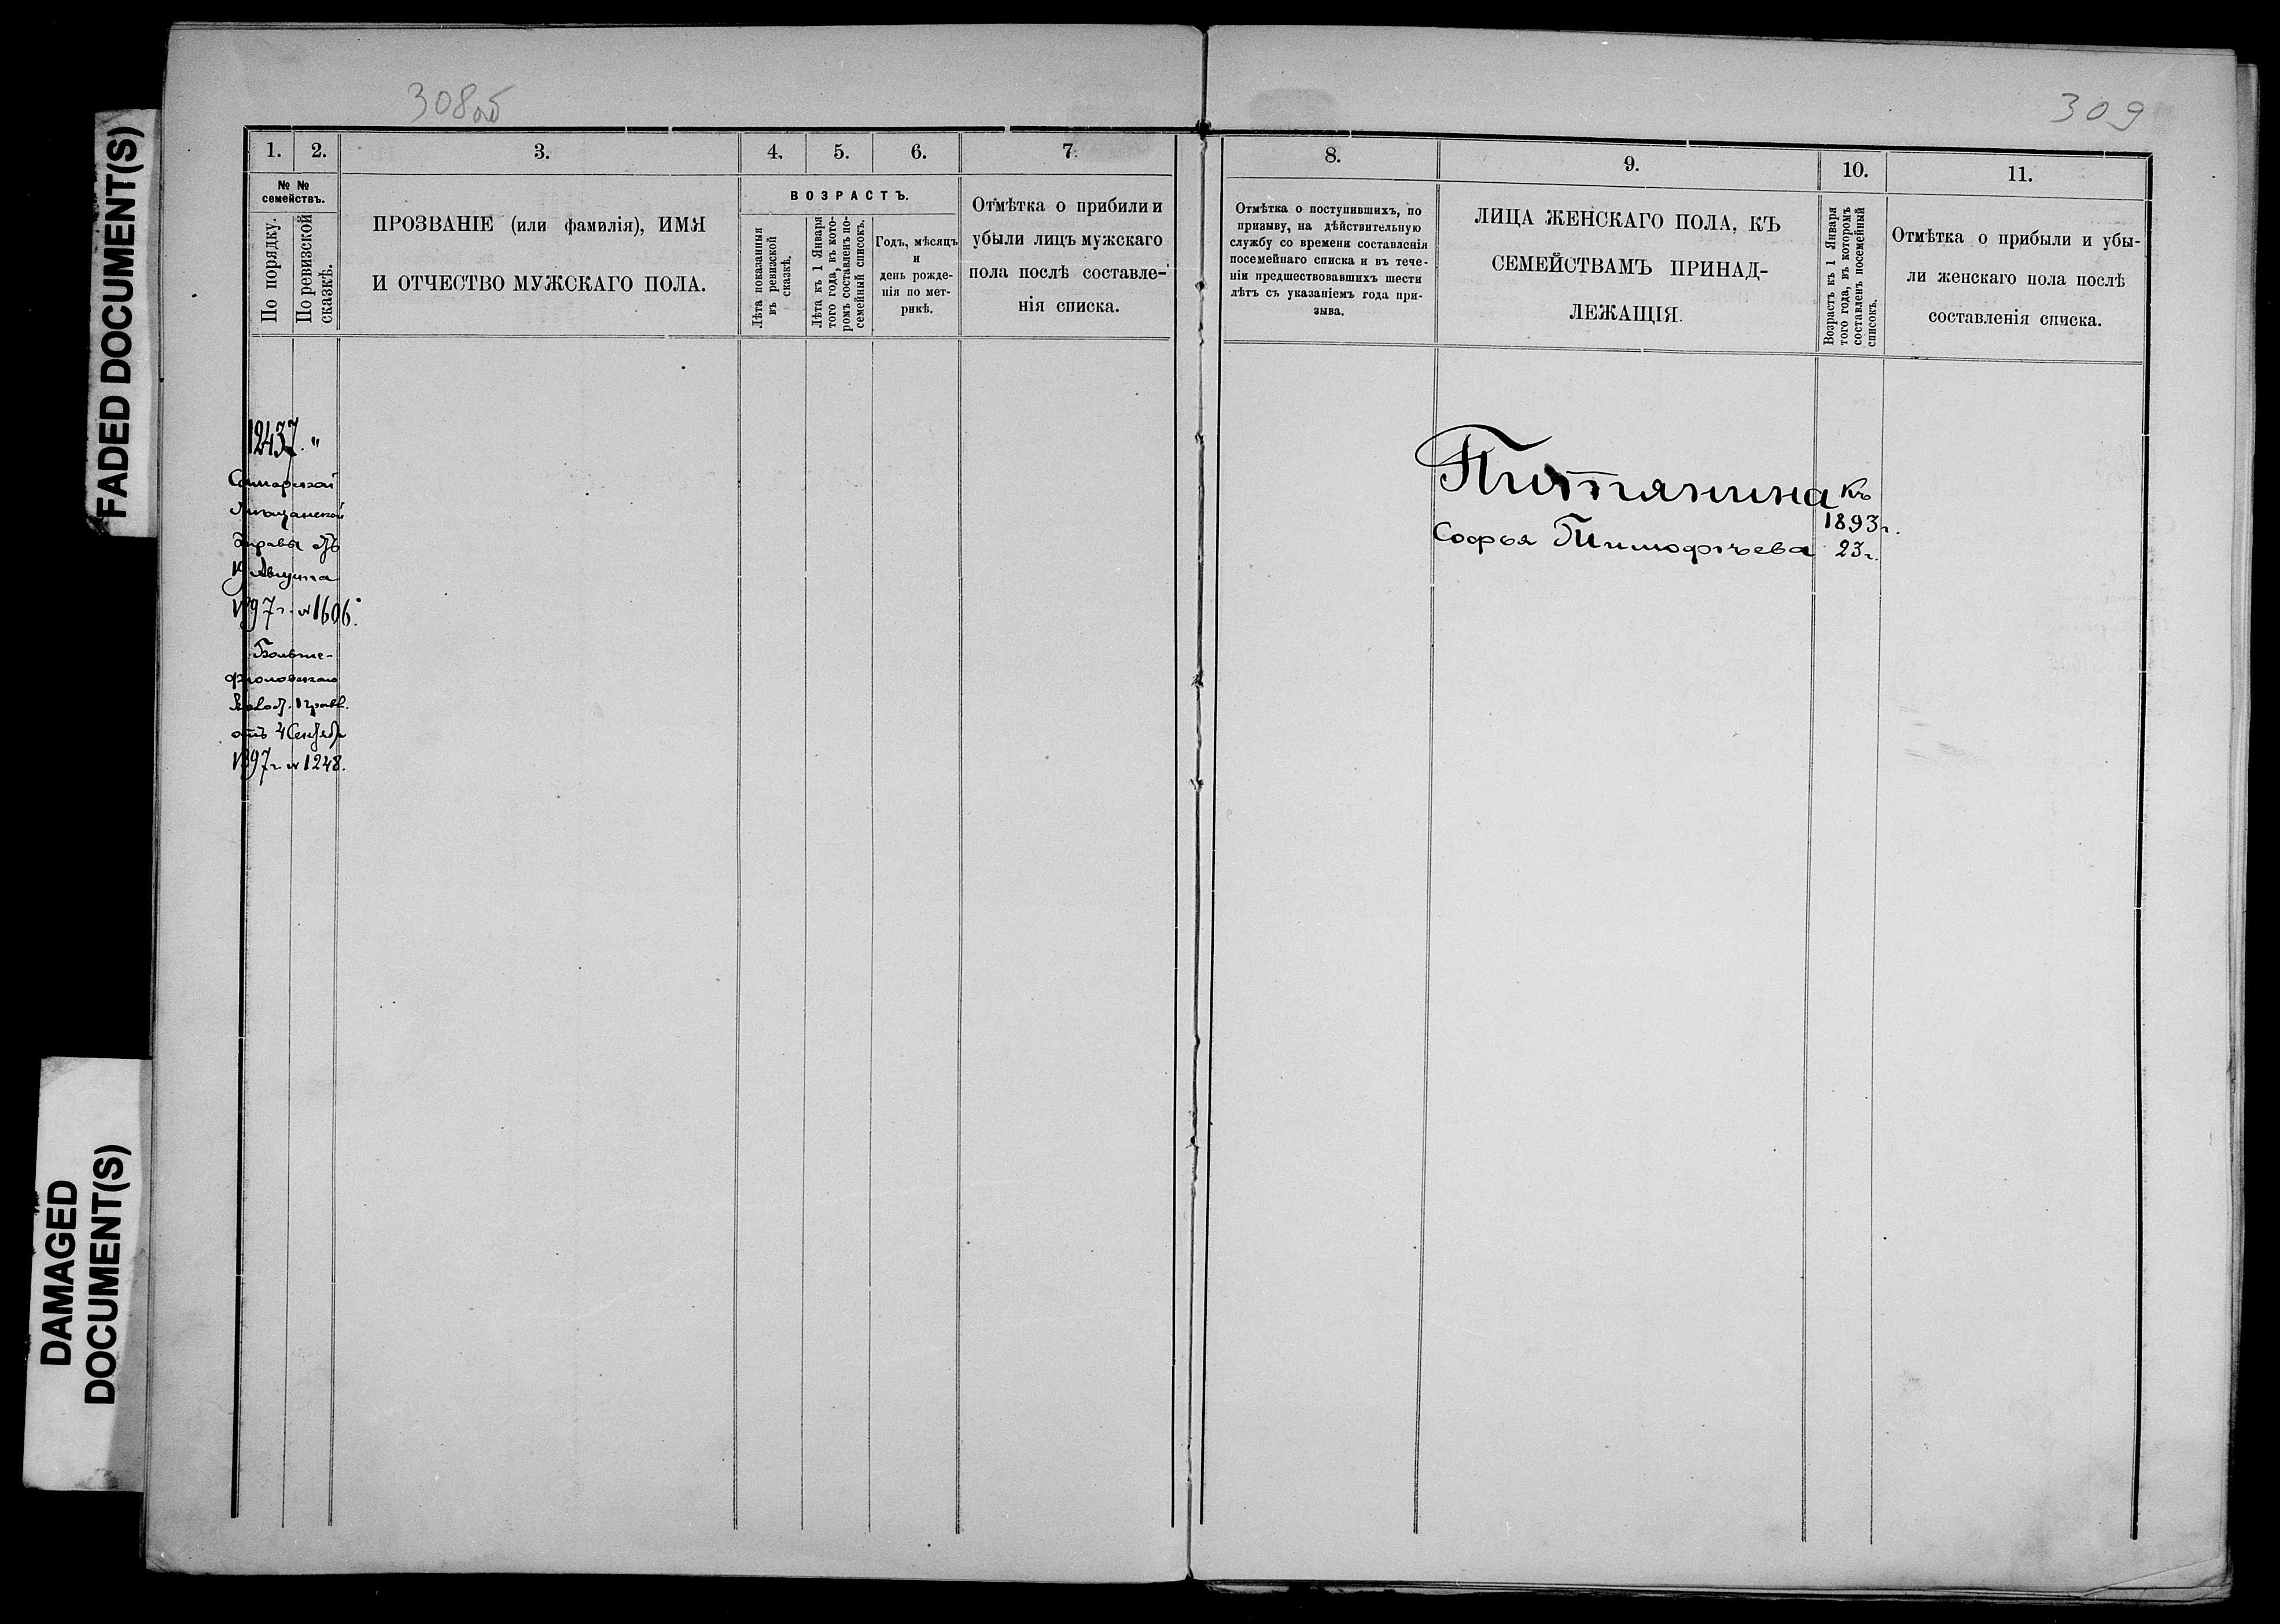 FADED DOCUMENT(S)
DAMAGED
DOCUMENT(S)
308об
1.
2.
3.
4.
5.
6.
7.
№ №
семействъ.
По порядку.
По ревизской
сказкѣ.
ПРОЗВАНІЕ (или фамилія), ИМЯ
И ОТЧЕСТВО МУЖСКАГО ПОЛА.
ВОЗРАСТЪ.
Лѣта показанныя
въ ревизской
сказкѣ.
Лѣта къ 1 Января
того года, въ кото-
ромъ составленъ по-
семейный списокъ.
Годъ, мѣсяцъ
и
день рожде-
нія по мет-
рикѣ.
Отмѣтка о прибили и
убыли лицъ мужскаго
пола послѣ составле-
нія списка.
12437. "
Самарской
Мѣщанской
Управы отъ
19 Августа
1897 г. № 1606.
Больше-
Волост. Правл.
отъ 4 Сентября
1897 г. № 1248.
309
8.
9.
10.
11.
Отмѣтка о поступившихъ, по
призыву, на дѣйствительную
службу со времени составленія
посемейнаго списка и въ тече-
ніи предшествовавшихъ шести
лѣтъ съ указаніемъ года при-
зыва.
ЛИЦА ЖЕНСКАГО ПОЛА, КЪ
СЕМЕЙСТВАМЪ ПРИНАД-
ЛЕЖАЩІЯ.
Возрастъ къ 1 Января
того года, въ которомъ
составленъ посемейный
списокъ.
Отмѣтка о прибыли и убы-
ли женскаго пола послѣ
составленія списка.
къ
1893 г.
Софья Тимофѣева 23 г.